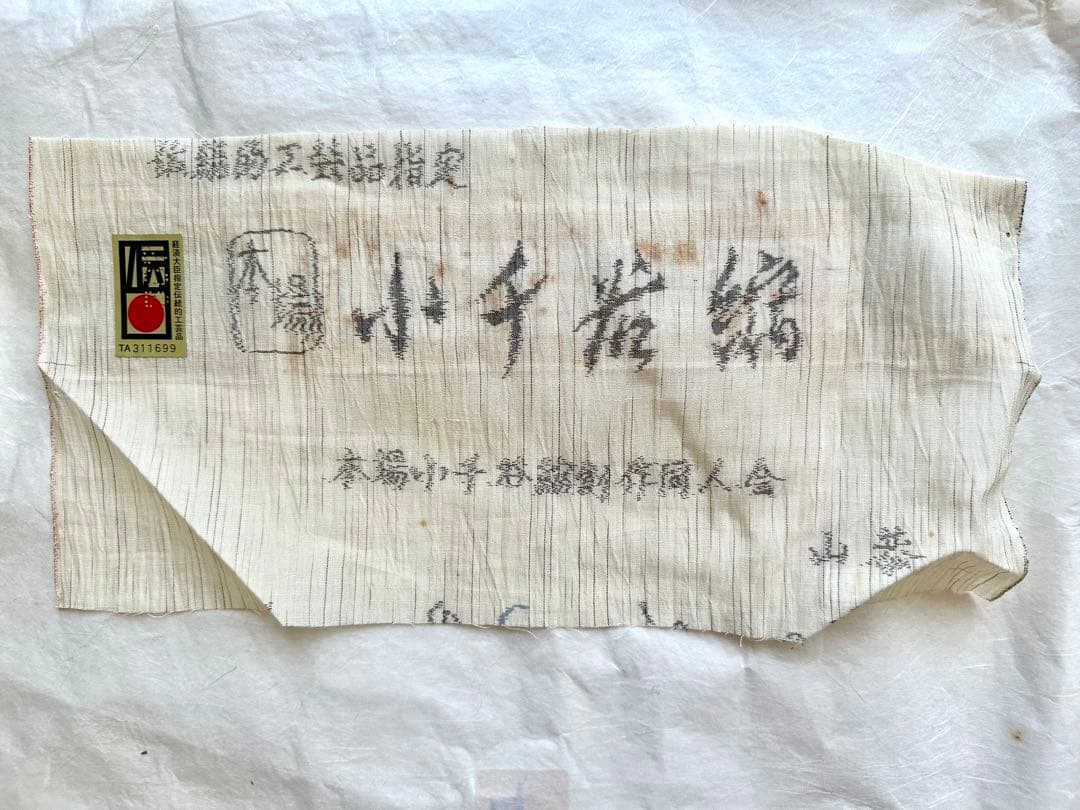 伝統的工芸品指定
伝
経済大臣指定伝統的工芸品
TA311699
本場
小千谷縮
本場小千谷縮創作同人会
山